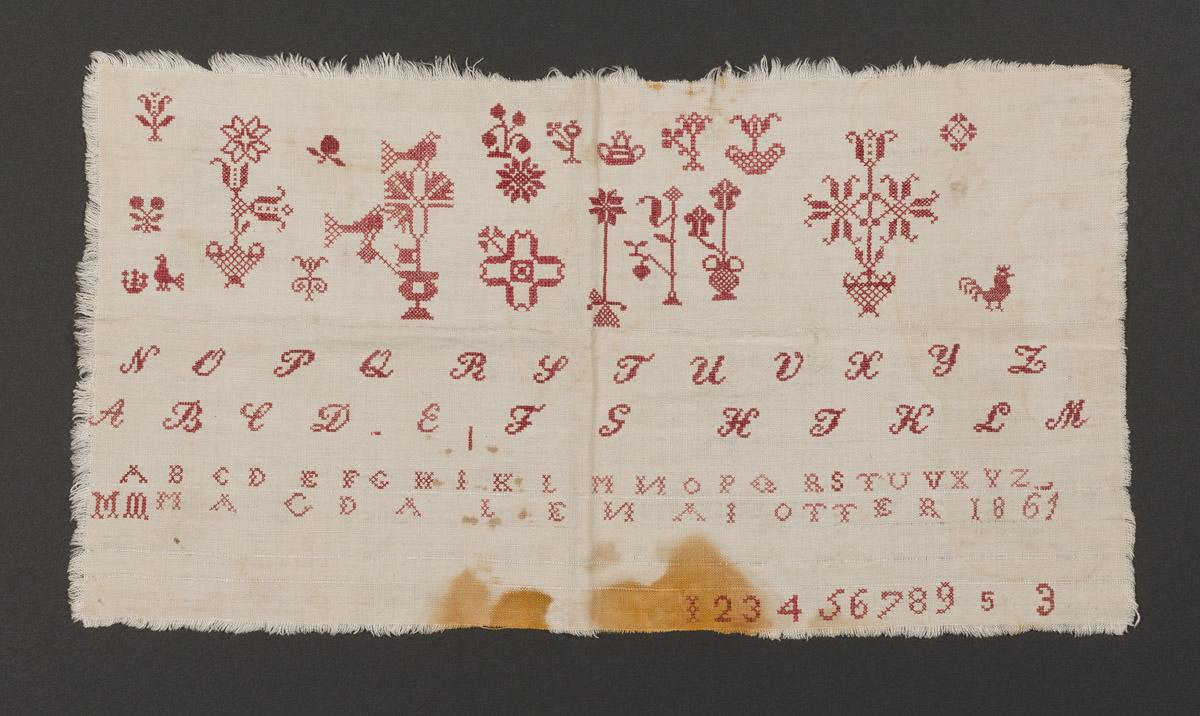 N O P Q R S T U V X Y Z
A B C D E F G H I K L M
A B C D E F G H I K L M N O P Q R S T U V X Y Z
M M M A C D A L E N A I O T T E R 1861
1 2 3 4 5 6 7 8 9 5 3